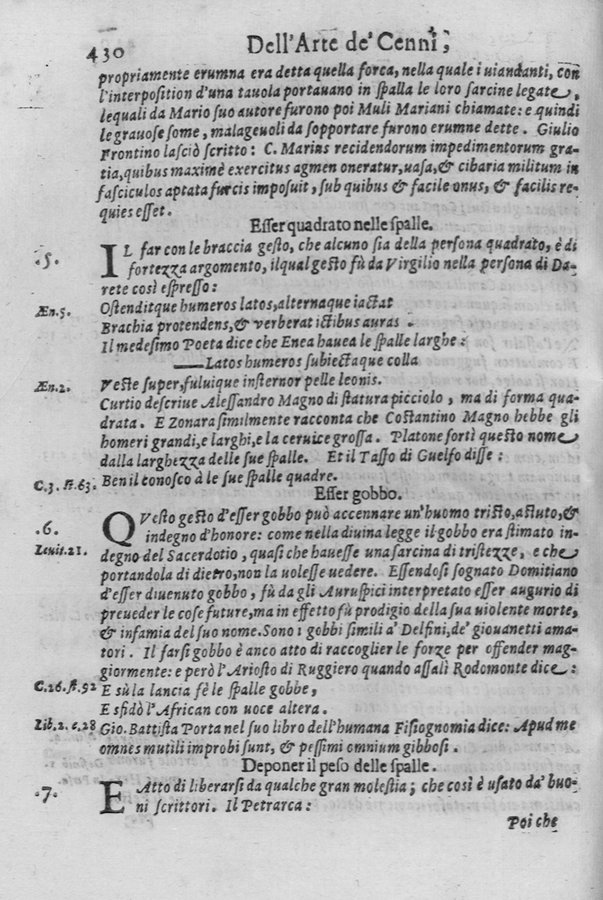 430 Dell'Arte de' Cenni,
propriamente erumna era detta quella forca, nella quale i uiandanti, con
l'interposition d'una tauola portauano in spalla le loro sarcine legate,
lequali da Mario suo autore furono poi Muli Mariani chiamate: e quindi
le grauose some, malageuoli da sopportare furono erumne dette. Giulio
Frontino lasciò scritto: C. Marius recidendorum impedimentorum gra-
tia, quibus maximè exercitus agmen oneratur, uasa, & cibaria militum in
fasciculos aptata furcis imposuit, sub quibus & facile onus, & facilis re-
quies esset.
Esser quadrato nelle spalle.
.5. IL far con le braccia gesto, che alcuno sia della persona quadrato, è di
fortezza argomento, ilqual gesto fù da Virgilio nella persona di Da-
rete così espresso:
Æn.5. Ostenditque humeros latos, alternaque iactat
Brachia protendens, & verberat ictibus auras.
Il medesimo Poeta dice che Enea hauea le spalle larghe:
——Latos humeros subiectaque colla
Æn.2. Veste super, fuluique insternor pelle leonis.
Curtio descriue Alessandro Magno di statura picciolo, ma di forma qua-
drata. E Zonara similmente racconta che Costantino Magno hebbe gli
homeri grandi, e larghi, e la ceruice grossa. Platone fortì questo nome
dalla larghezza delle sue spalle. Et il Tasso di Guelfo disse:
C.3. st.63. Ben il conosco à le sue spalle quadre.
Esser gobbo.
.6. QVesto gesto d'esser gobbo può accennare un'huomo tristo, astuto, &
indegno d'honore: come nella diuina legge il gobbo era stimato in-
Leuit.21. degno del Sacerdotio, quasi che hauesse una sarcina di tristezze, e che
portandola di dietro, non la uolesse uedere. Essendosi sognato Domitiano
d'esser diuenuto gobbo, fù da gli Auruspici interpretato esser augurio di
preueder le cose future, ma in effetto fù prodigio della sua uiolente morte,
& infamia del suo nome. Sono i gobbi simili a' Delfini, de' giouanetti ama-
tori. Il farsi gobbo è anco atto di raccoglier le forze per offender mag-
giormente: e però l'Ariosto di Ruggiero quando assalì Rodomonte dice:
C.26. st.92 E sù la lancia fè le spalle gobbe,
E sfidò l'African con uoce altera.
Lib.2. c.28 Gio. Battista Porta nel suo libro dell'humana Fisiognomia dice: Apud me
omnes mutili improbi sunt, & pessimi omnium gibbosi.
Deponer il peso delle spalle.
.7. E Atto di liberarsi da qualche gran molestia; che così è usato da' buo-
ni scrittori. Il Petrarca:
Poi che